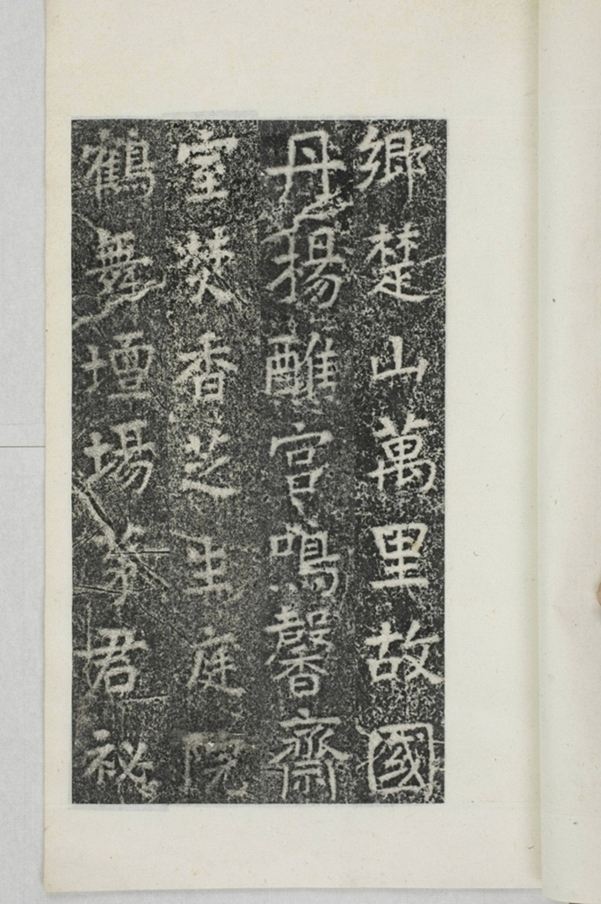 鄉楚山萬里故國
丹揚醮宮鳴馨齋
室焚香芝生庭院
鶴舞壇場君祕